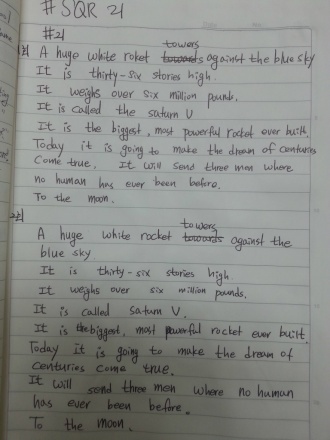 # SQR 21
#21
1회
towers
A huge white roket towards against the blue sky
It is thirty-six stories high.
It weighs over six million pounds.
It is called the saturn V
It is the biggest, most powerful rocket ever built.
Today it is going to make the dream of centuries
come true. It will send three men where
no human has ever been before.
To the moon.
2회
towers
A huge white rocket towards against the
blue sky
It is thirty-six stories high.
It weighs over six million pounds.
It is called saturn V.
It is the biggest, most powerful rocket ever built.
Today it is going to make the dream of
centuries come true.
It will send three men where no human
has ever been before.
To the moon.